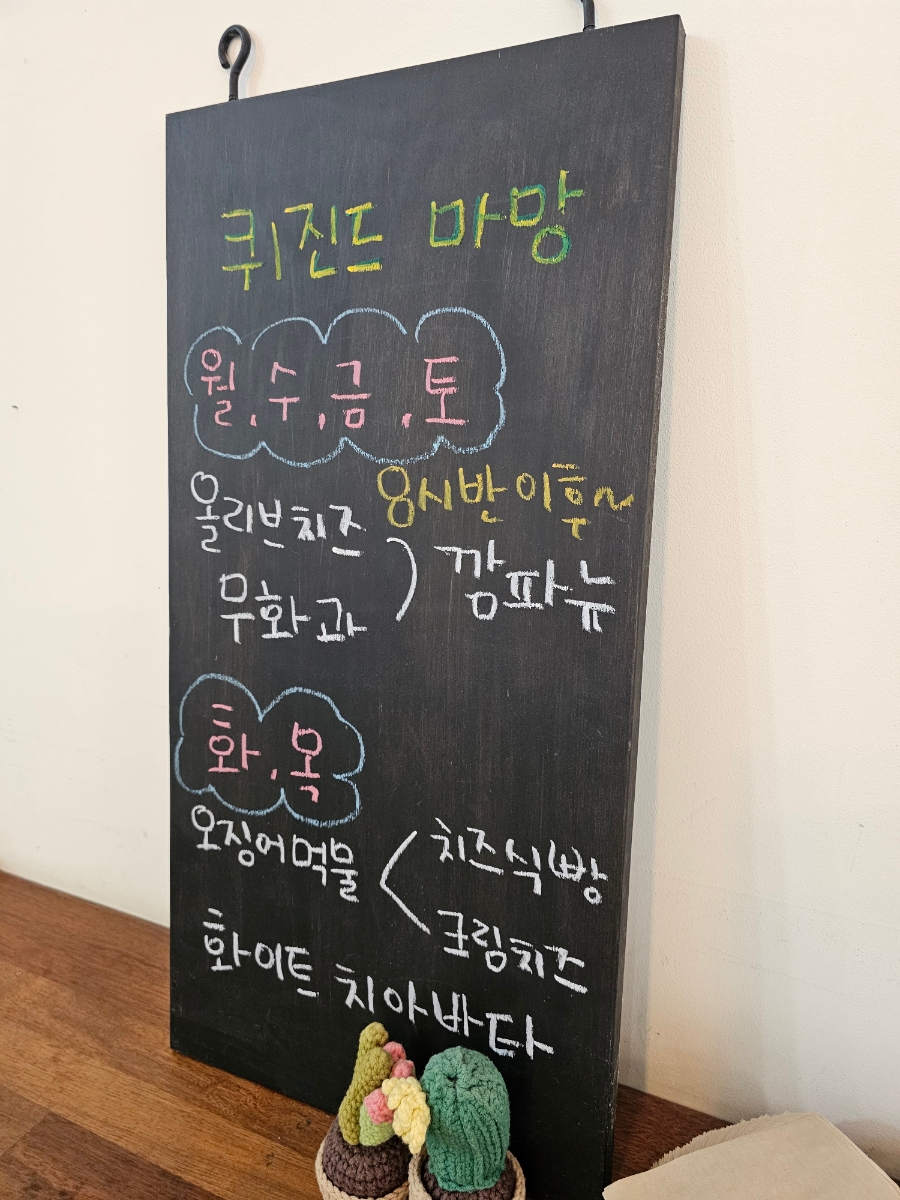 퀴진드 마망
월,수,금,토
8시반이후~
올리브치즈
무화과
) 깜파뉴
화,목
오징어먹물 < 치즈식빵
크림치즈
화이트 치아바타